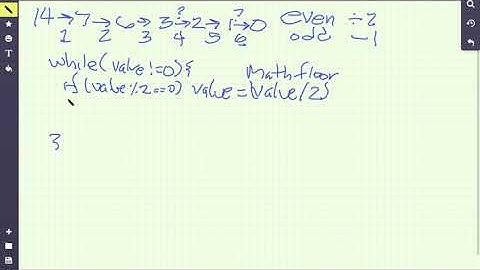 14→7→6→3→2→1→0 even ÷2
? ?
1 2 3 4 5 6 odd −1
while(value!=0){ Mathfloor
if(value%2==0) value=(value/2)
3